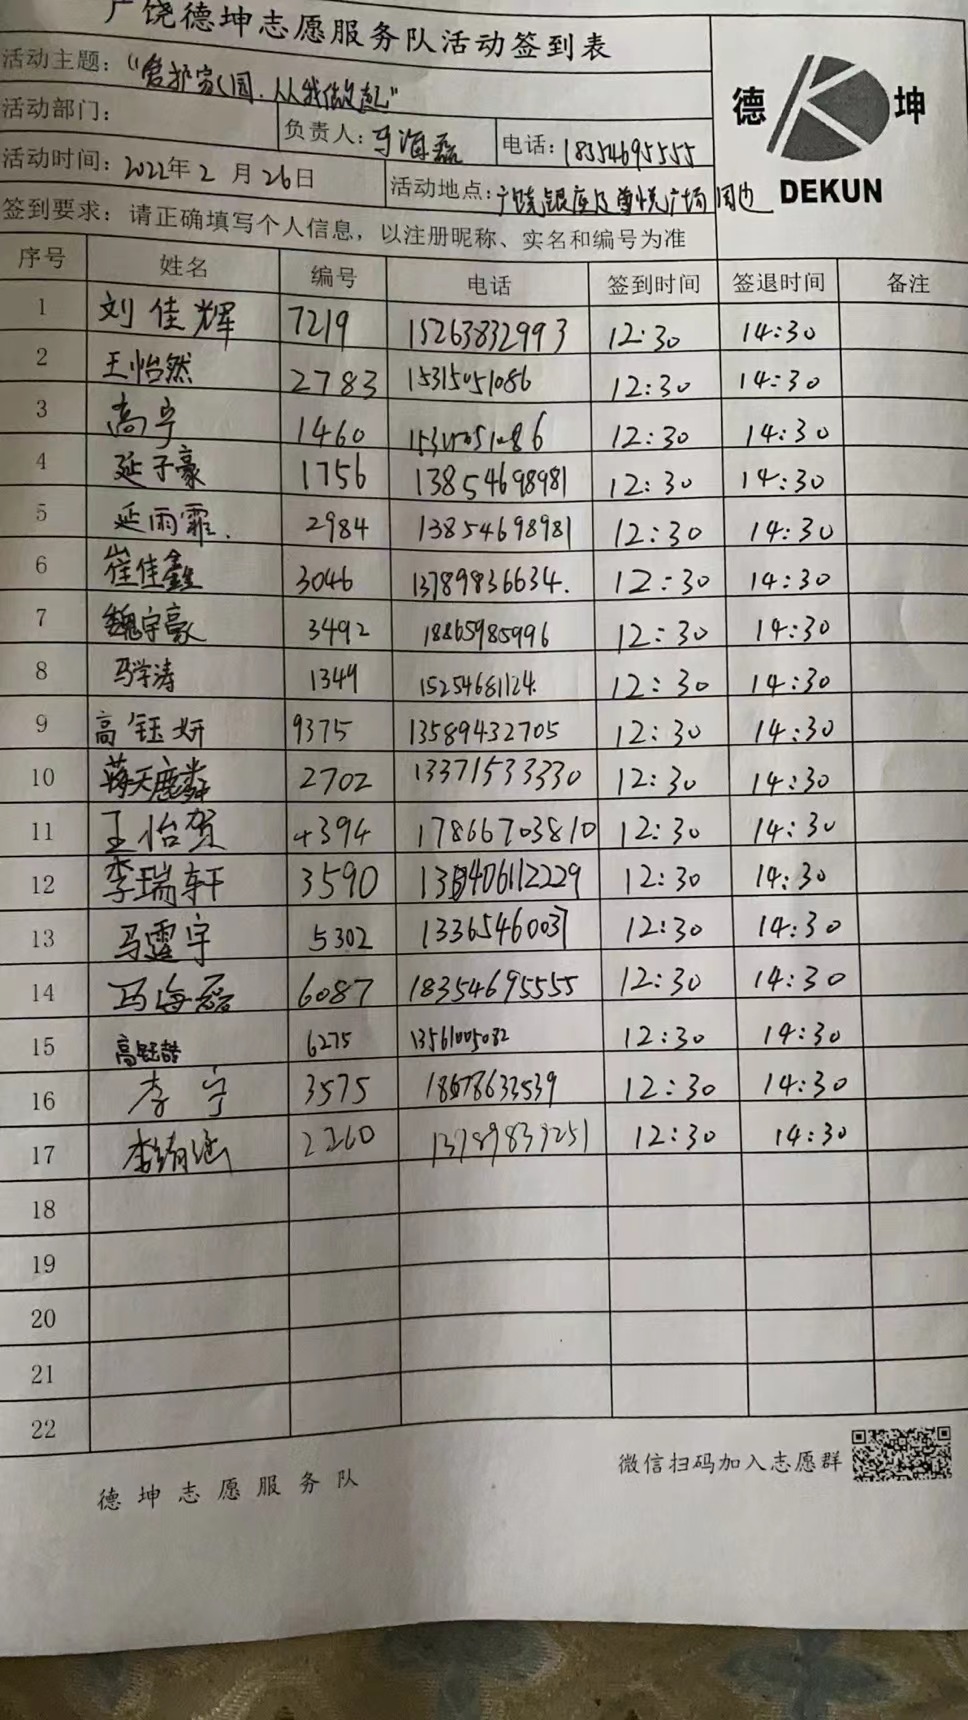 广饶德坤志愿服务队活动签到表
活动主题：“爱护家园.从我做起”
活动部门：
负责人：马海磊 电话：18354695555
活动时间：2022年2月26日 活动地点：广饶银座及尊悦广场周边
德坤
DEKUN
签到要求：请正确填写个人信息，以注册昵称、实名和编号为准
序号 姓名 编号 电话 签到时间 签退时间 备注
1 刘佳辉 7219 15263832993 12:30 14:30
2 王怡然 2783 15315051086 12:30 14:30
3 高宁 1460 15315051086 12:30 14:30
4 延子豪 1756 13854698981 12:30 14:30
5 延雨霏. 2984 13854698981 12:30 14:30
6 崔佳鑫 3046 13789836634. 12:30 14:30
7 魏宇豪 3492 18865985996 12:30 14:30
8 马学涛 1349 15254681124. 12:30 14:30
9 高钰妍 9375 13589432705 12:30 14:30
10 蒋天麟 2702 13371533330 12:30 14:30
11 王怡贺 4394 17866703810 12:30 14:30
12 李瑞轩 3590 12:30 14:30
13 马霆宇 5302 13365460037 12:30 14:30
14 马海磊 6087 18354695555 12:30 14:30
15 高钰喆 6275 13561005082 12:30 14:30
16 李宁 3575 18678633539 12:30 14:30
17 李绮涵 2260 13789839251 12:30 14:30
18
19
20
21
22
微信扫码加入志愿群
德坤志愿服务队